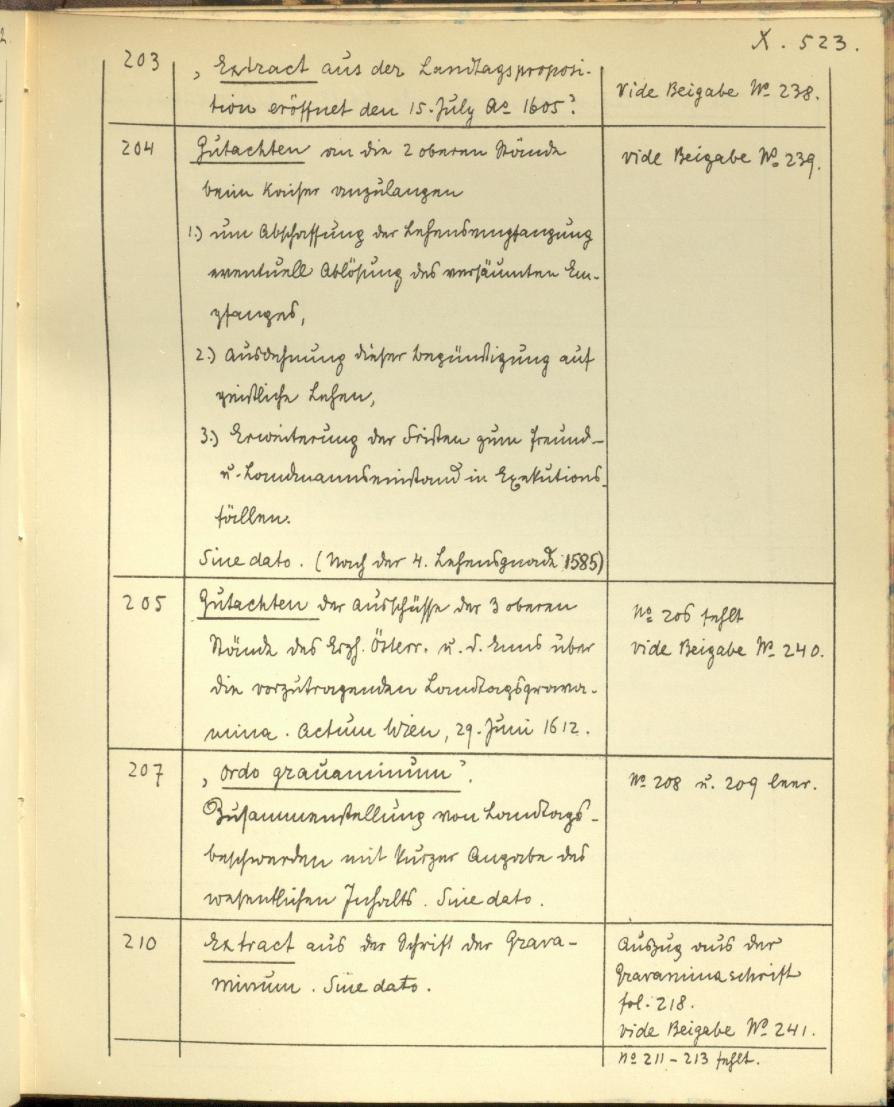 X. 523.
203
„Extract aus der Landtagsproposi-
tion eröffnet den 15. July Ao 1605“
Vide Beigabe No 238.
204
Gutachten an die 2 oberen Stände
beim Kaiser anzulangen
1.) um Abschaffung der Lehensempfangung
eventuell Ablösung des versäumten Em-
pfanges,
2.) Ausdehnung dieser Begünstigung auf
geistliche Lehen,
3.) Erweiterung der Fristen zum Freund-
u. Landmannseinstand in Exekutions-
fällen.
Sine dato. (Nach der 4. Lehensgnade 1585)
vide Beigabe No 239.
205
Gutachten der Ausschüsse der 3 oberen
Stände des Erzh. Österr. u. d. Enns über
die vorzutragenden Landtagsgrava-
mina. Actum Wien, 29. Juni 1612.
No 206 fehlt
vide Beigabe No 240.
207
„Ordo grauaminum“.
Zusammenstellung von Landtags-
beschwerden mit kurzer Angabe des
wesentlichen Inhalts. Sine dato.
No 208 u. 209 leer.
210
Extract aus der Schrift der Grava-
minum. Sine dato.
Auszug aus der
Gravaminaschrift
fol. 218.
vide Beigabe No 241.
No 211-213 fehlt.